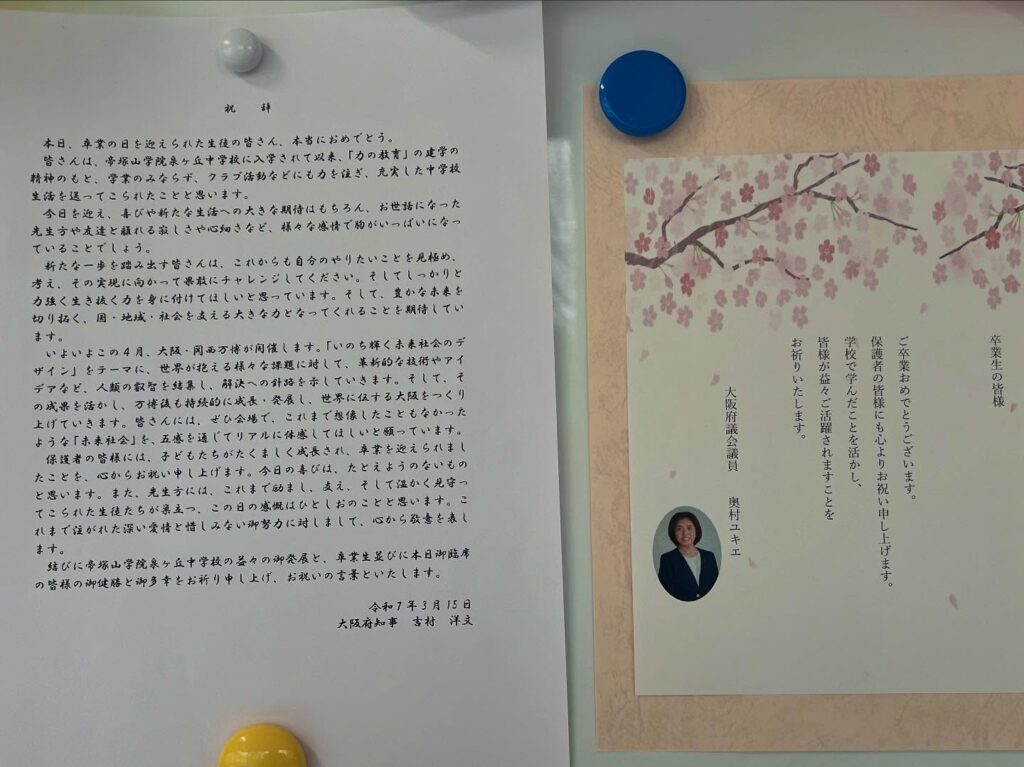 祝　辞
本日、卒業の日を迎えられた生徒の皆さん、本当におめでとう。
皆さんは、帝塚山学院泉ヶ丘中学校に入学されて以来、「力の教育」の建学の
精神のもと、学業のみならず、クラブ活動などにも力を注ぎ、充実した中学校
生活を送ってこられたことと思います。
今日を迎え、喜びや新たな生活への大きな期待はもちろん、お世話になった
先生方や友達と離れる寂しさや心細さなど、様々な感情で胸がいっぱいになっ
ていることでしょう。
新たな一歩を踏み出す皆さんは、これからも自分のやりたいことを見極め、
考え、その実現に向かって果敢にチャレンジしてください。そしてしっかりと
力強く生き抜く力を身に付けてほしいと思っています。そして、豊かな未来を
切り拓く、国・地域・社会を支える大きな力となってくれることを期待していま
す。
いよいよこの４月、大阪・関西万博が開催します。「いのち輝く未来社会のデ
ザイン」をテーマに、世界が抱える様々な課題に対して、革新的な技術やアイ
デアなど、人類の叡智を結集し、解決への針路を示していきます。そして、そ
の成果を活かし、万博後も持続的に成長・発展し、世界に伍する大阪をつくり
上げていきます。皆さんには、ぜひ会場で、これまで想像したこともなかった
ような「未来社会」を、五感を通じてリアルに体感してほしいと願っています。
保護者の皆様には、子どもたちがたくましく成長され、卒業を迎えられまし
たことを、心からお祝い申し上げます。今日の喜びは、たとえようのないもの
と思います。また、先生方には、これまで励まし、支え、そして温かく見守っ
てこられた生徒たちが巣立つ、この日の感慨はひとしおのことと思います。こ
れまで注がれた深い愛情と惜しみない御努力に対しまして、心から敬意を表し
ます。
結びに帝塚山学院泉ヶ丘中学校の益々の御発展と、卒業生並びに本日御臨席
の皆様の御健勝と御多幸をお祈り申し上げ、お祝いの言葉といたします。
令和７年３月15日
大阪府知事　吉村　洋文
卒業生の皆様
ご卒業おめでとうございます。
保護者の皆様にも心よりお祝い申し上げます。
学校で学んだことを活かし、
皆様が益々ご活躍されますことを
お祈りいたします。
大阪府議会議員　奥村ユキエ